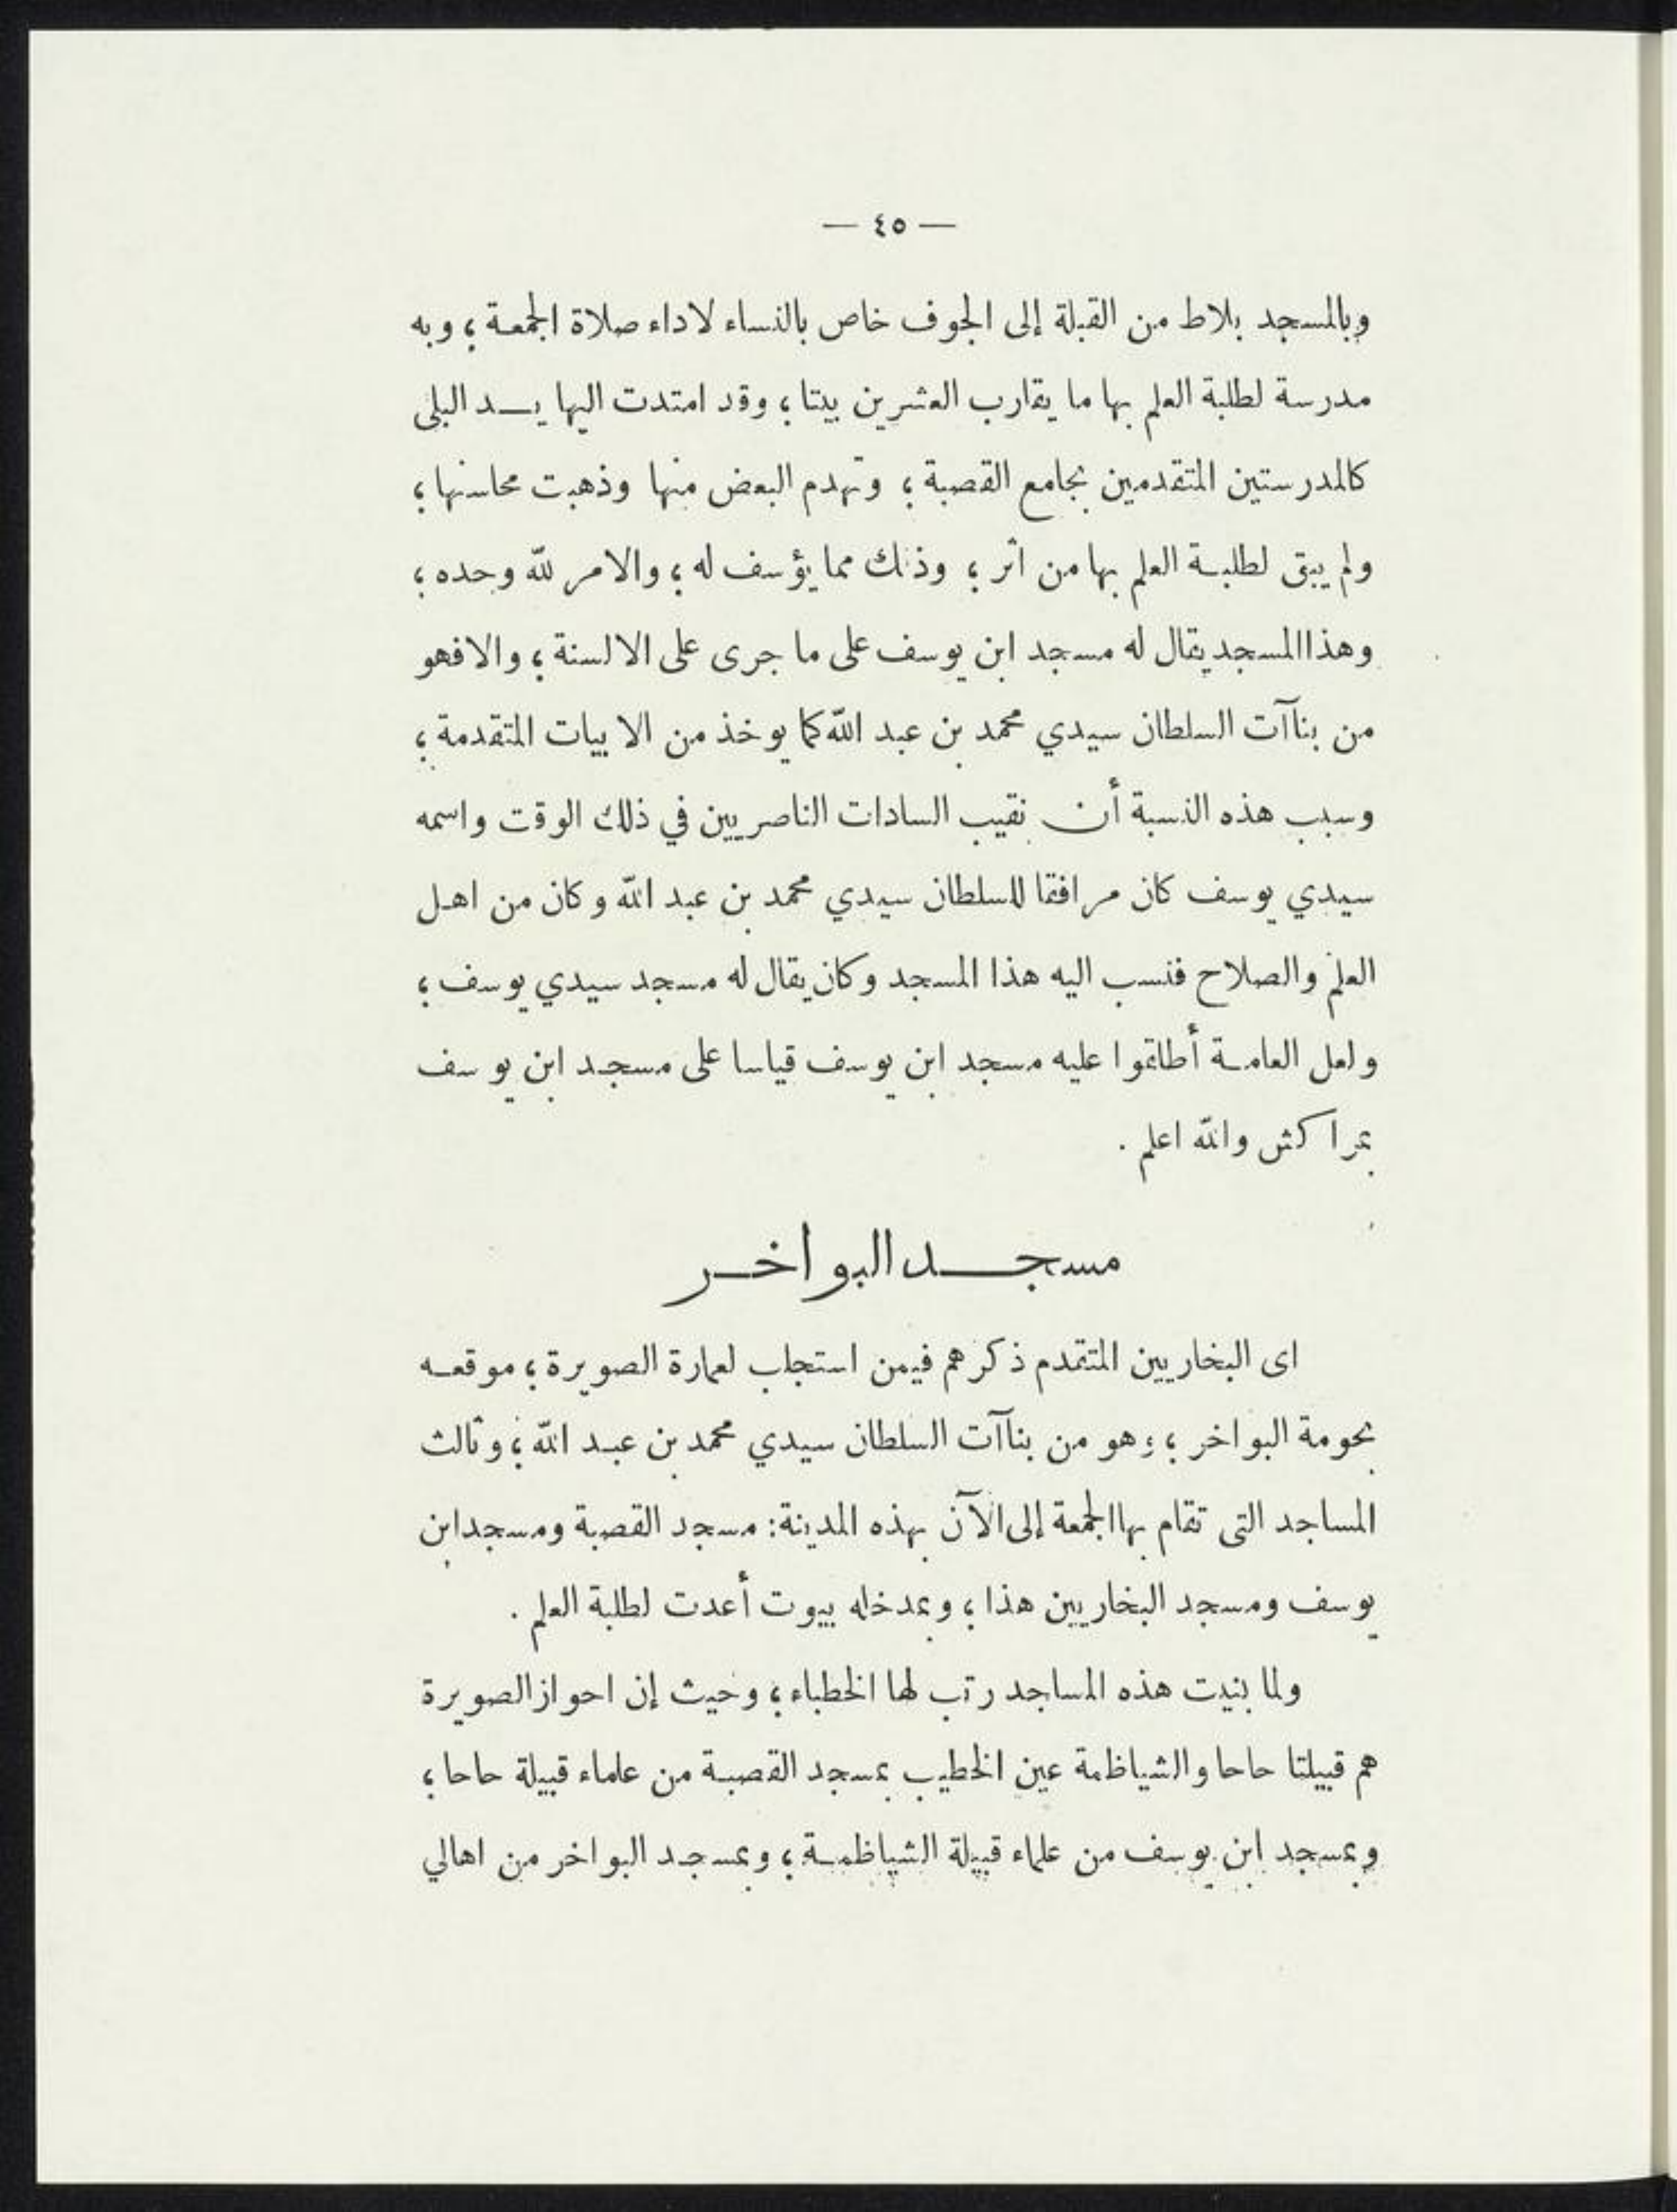 — ٤٥ —
وبالمسجد بلاط من القبلة إلى الجوف خاص بالنساء لاداء صلاة الجمعة ؛ وبه
مدرسة لطلبة العلم بها ما يقارب العشرين بيتا ؛ وقد امتدت اليها يـــد البلى
كالمدرستين المتقدمين بجامع القصبة ؛ وتهدم البعض منها وذهبت محاسنها ؛
ولم يبق لطلبـة العلم بها من أثر ؛ وذلك مما يؤسف له ؛ والامر لله وحده ؛
وهذا المسجد يقال له مسجد ابن يوسف على ما جرى على الالسنة ؛ والا فهو
من بناآت السلطان سيدي محمد بن عبد الله كما يوخذ من الابيات المتقدمة ؛
وسبب هذه النسبة أن نقيب السادات الناصريين في ذلك الوقت واسمه
سيدي يوسف كان مرافقا للسلطان سيدي محمد بن عبد الله وكان من اهل
العلم والصلاح فنسب اليه هذا المسجد وكان يقال له مسجد سيدي يوسف ؛
ولعل العامـة أطلقوا عليه مسجد ابن يوسف قياسا على مسجد ابن يوسف
بمراكش والله اعلم .
مسجـــد البواخـر
اى البخاريين المتقدم ذكرهم فيمن استجلب لعمارة الصويرة ؛ موقعـه
بحومة البواخر ؛ وهو من بناآت السلطان سيدي محمد بن عبـد الله ؛ وثالث
المساجد التى تقام بها الجمعة إلى الآن بهذه المدينة : مسجد القصبة ومسجد ابن
يوسف ومسجد البخاريين هذا ؛ وبمدخله بيوت أعدت لطلبة العلم .
ولما بنيت هذه المساجد رتب لها الخطباء ؛ وحيث إن احواز الصويرة
هم قبيلتا حاحا والشياظمة عين الخطيب بمسجد القصبـة من علماء قبيلة حاحا ؛
وبمسجد ابن يوسف من علماء قبيلة الشياظمـة ؛ وبمسجد البواخر من اهالي